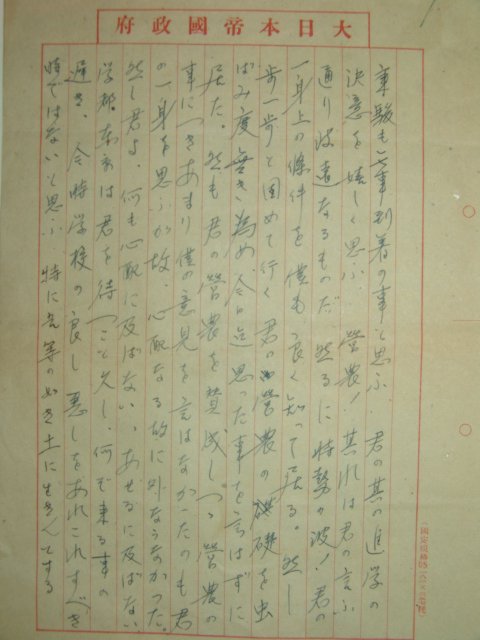 府政國帝本日大
車駿も無事到着の事と思ふ 君の其の進学の
決意を嬉しく思ふ 営農！其れは君の言ふ
通り波遠なるものだ 然るに時勢の波！君の
一身上の條件を僕も良く知って居る。然し
歩一歩と固めて行く君の営農の礎を虫
ばみ度無き為め今日迄思った事を言はずに
居た。然も君の営農を賛成しつゝ営農の
事につきあまり僕の意見を言はなかったのも君
の一身を思ふが故、心配なる故に外ならなかった。
然し君よ、何も心配に及ばない、あせるに及ばない
学都、東京は君を待つこと久し、何ぞ来る事の
遅き、今時学校の良し悪しをあれこれすべき
時ではないと思ふ 特に吾等の如き土に生きんとする